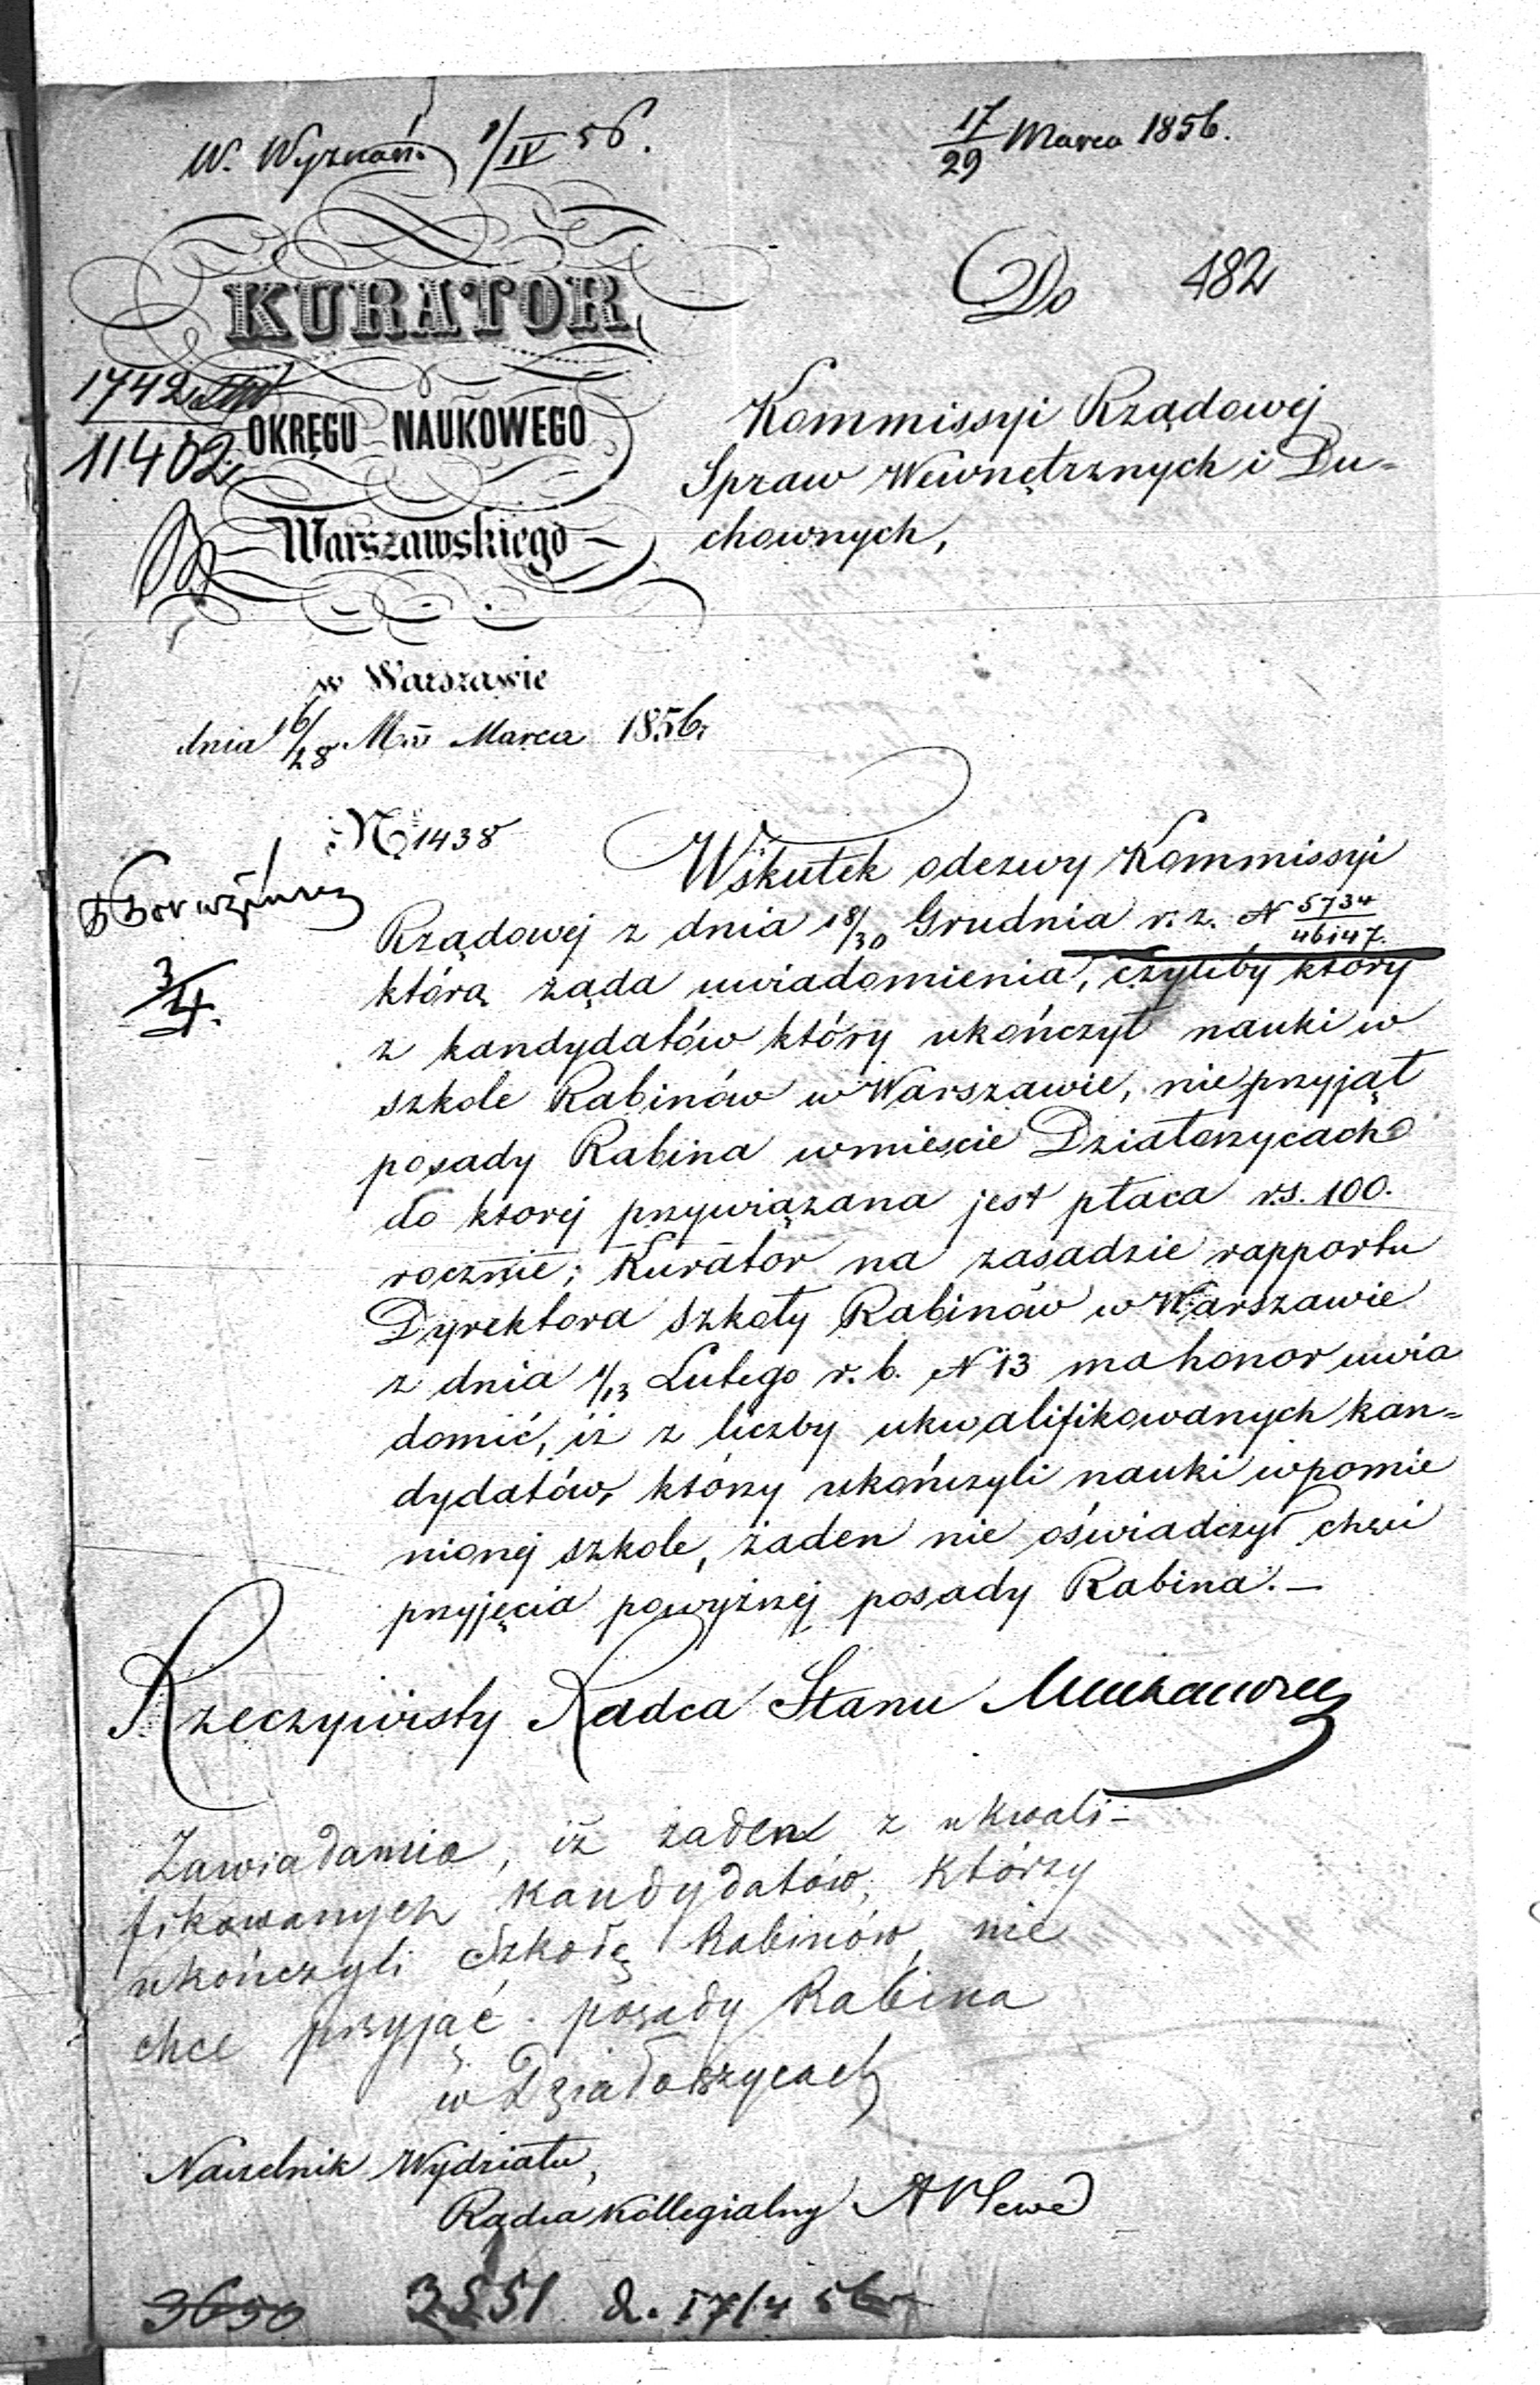 W. Wyznań. 1/IV 56.
17/29 Marca 1856.
Do 482
KURATOR
OKRĘGU NAUKOWEGO
Warszawskiego
1742
11402
Kommissyi Rządowej
Spraw Wewnętrznych i Du=
chownych,
w Warszawie
dnia 16/28 Marca 1856.
№ 1438
3/4.
Wskutek odezwy Kommissyi
Rządowej z dnia 18/30 Grudnia r. z. N 5734/46147.
którą żąda uwiadomienia, czyliby który
z kandydatów który ukończył nauki w
szkole Rabinów w Warszawie, nie przyjął
posady Rabina w mieście Działoszycach
do ktorej przywiązana jest płaca rs. 100.
rocznie; Kurator na zasadzie rapportu
Dyrektora szkoły Rabinów w Warszawie
z dnia 1/13 Lutego r. b. N 13 ma honor uwia
domić, iż z liczby ukwalifikowanych kan=
dydatów, którzy ukończyli nauki w pomie
nionej szkole, żaden nie oświadczył chęci
przyjęcia powyższej posady Rabina. —
Rzeczywisty Radca Stanu
Zawiadamia, iż żaden z ukwali-
fikowanych kandydatów, którzy
ukończyli Szkołę Rabinów, nie
chce przyjąć posady Rabina
w Działoszycach
Naczelnik Wydziału,
Radca Kollegialny
3650 3551 d. 17/4 56